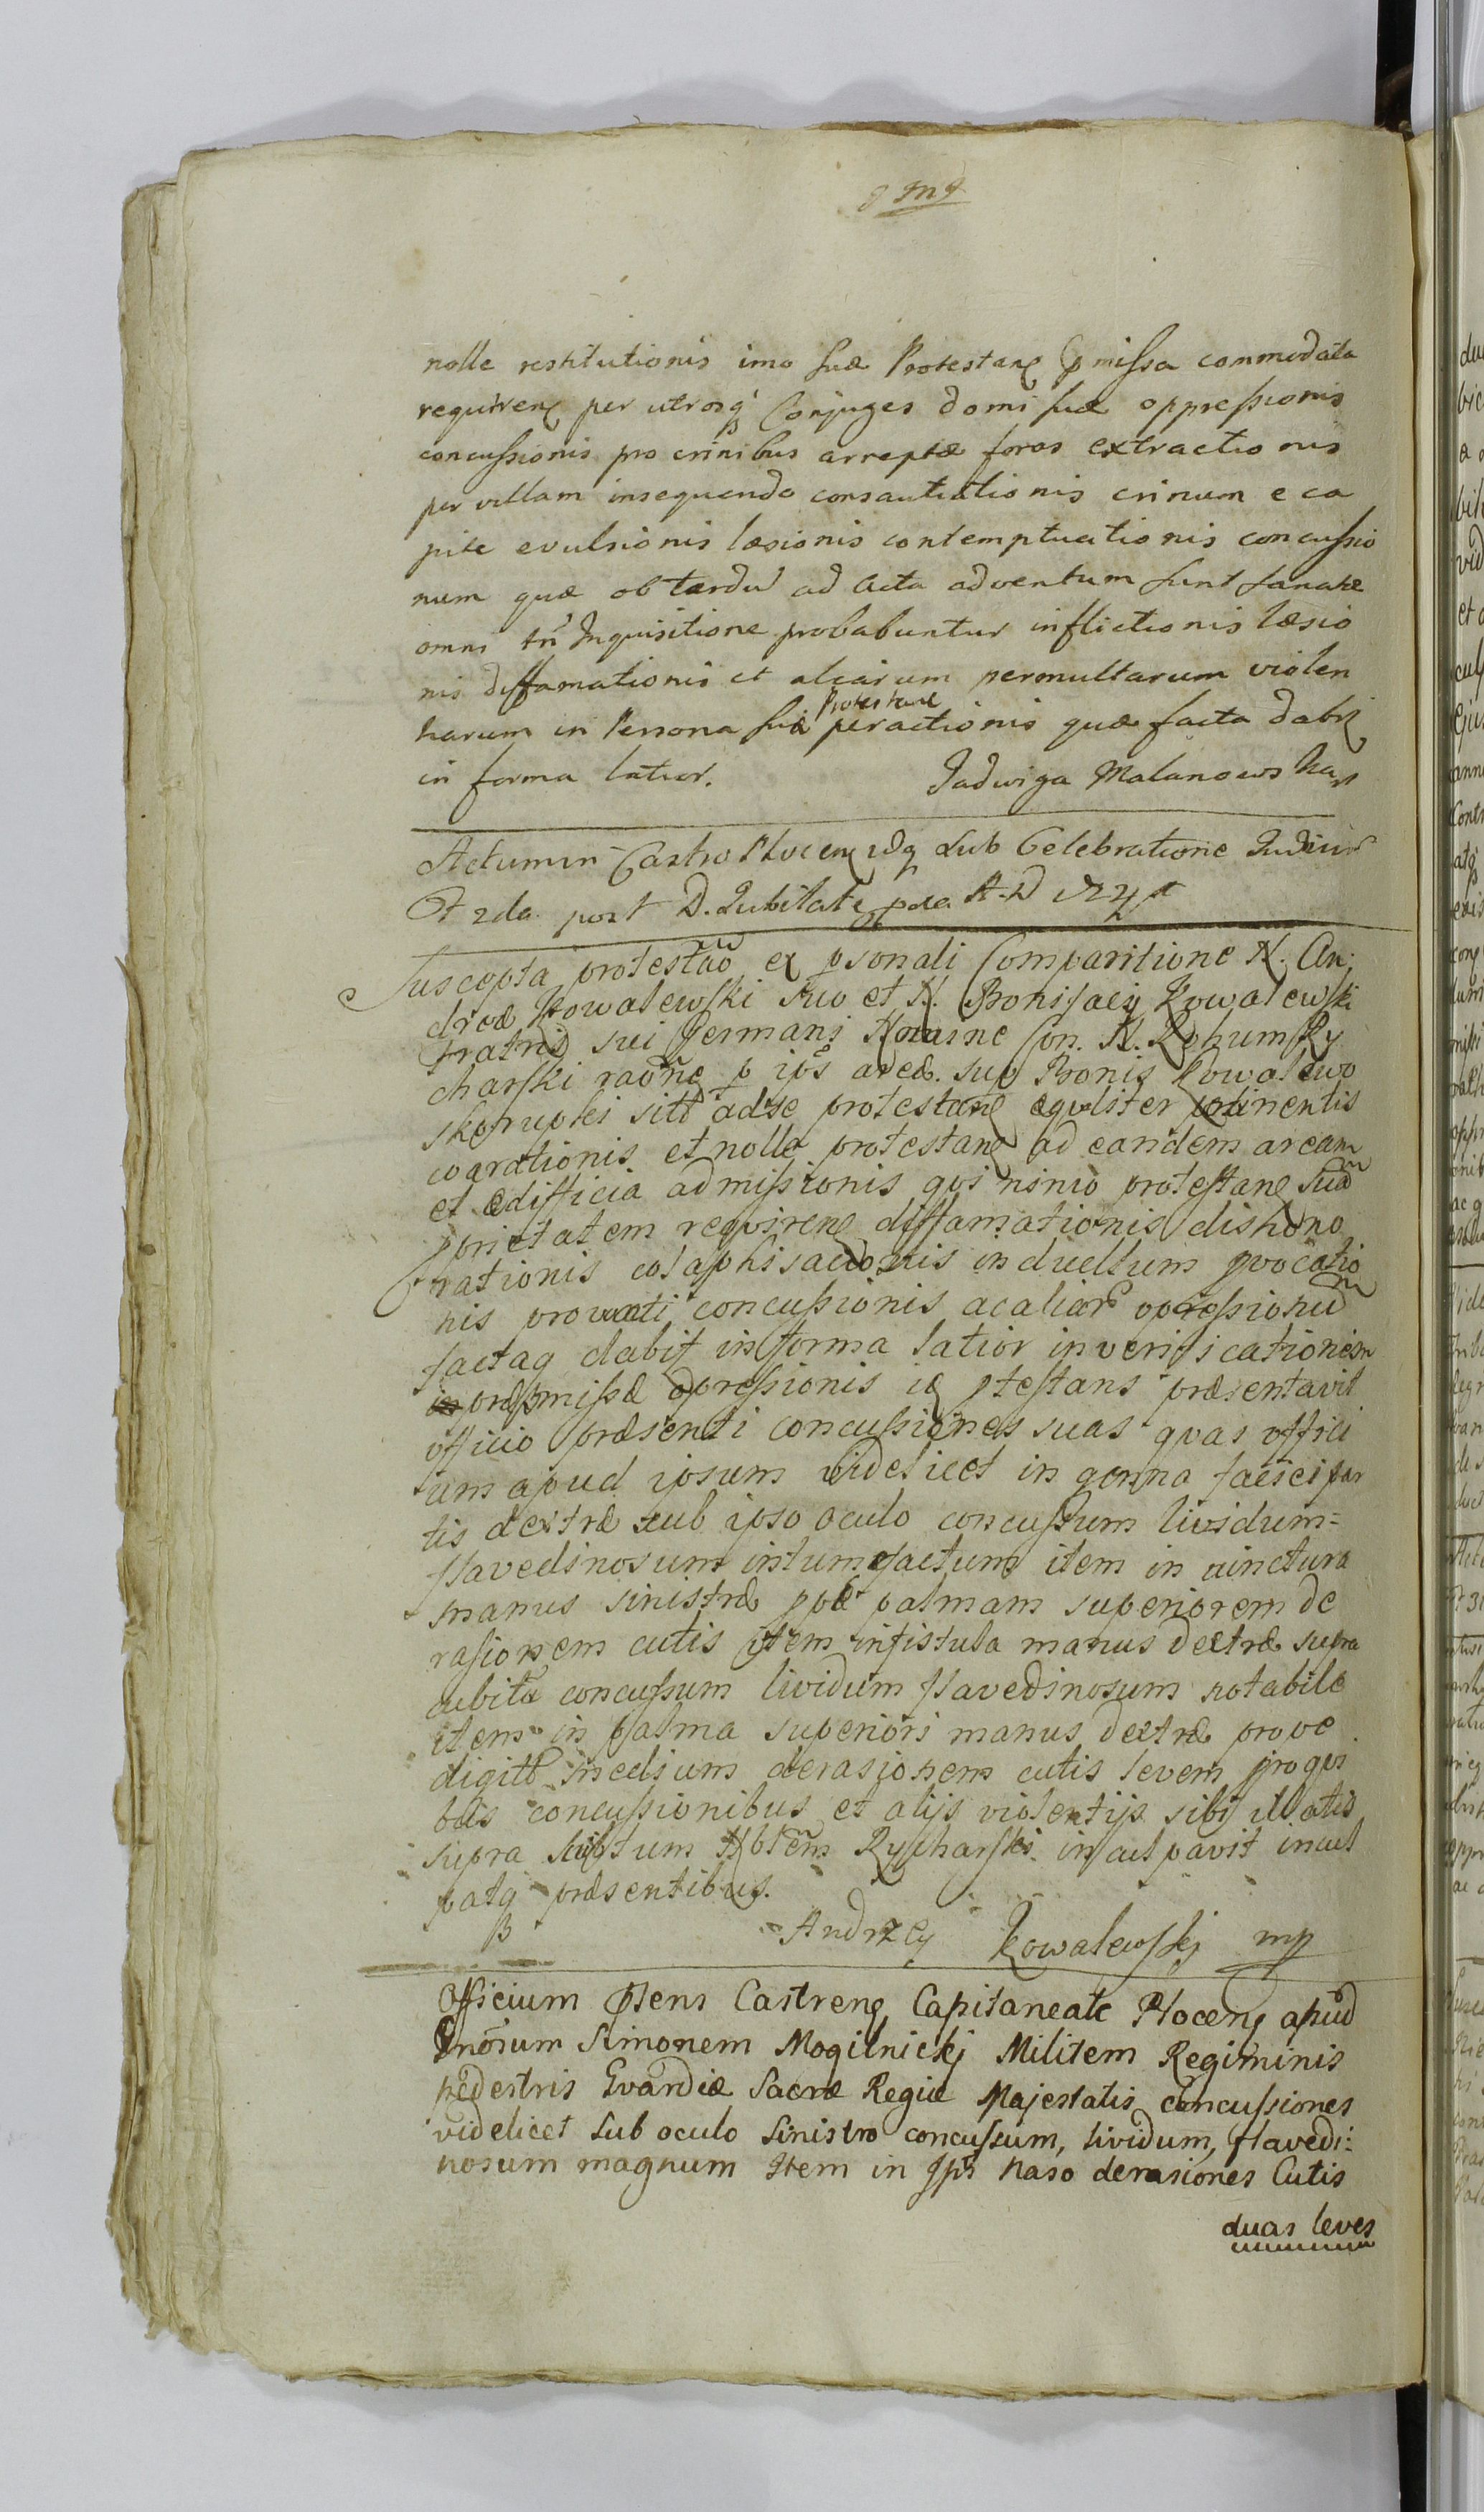 nolle restitutionis imo suæ Protestanę pmissa commodata
requirenę per utrosq Conjuges domi suæ oppressionis
concussionis pro crinibus arreptæ foras extractionis
per villam insequendo crinum e ca
pite evulsionis læsionis contemptuationis concussio
num quæ ob tardu ad Acta adventum sunt sanatæ
omni tn Inquisitione probabuntur inflictionis læsio
nis diffamationis et aliarum permultarum violen
tiarum in Persona suæ Protestane peractionis quæ facta dabį
in forma latior. Jadwiga Malanowska
Actum in Castro Plocen sub Celebratione Judicior
post D. Jubilate A. D.
Suscepta protestao ex psonali Comparitione N. An-
dreæ Kowalewski suo et N. Bonifacij Kowalewski
Fratris sui Germani Nomine Con. N. Ry
charski raone p ips areæ suo Bonis Kowalewo
Skorupki sitæ ad se protestane equliter ptinentis
coarationis et nolle protestane ad eandem aream
et ædifficia admissionis qui nimo protestane suam
prietatem requirenę diffamationis dishono
rationis colaphisationis in duellum pvocatio
nis concussionis ac aliar oppressionu
factaq dabit in forma latior in verificationem
præmissæ opressionis præsentavit
officio præsenti concussiones suas quas offici
um apud ipsum videlicet in genna faciei par
tis dextræ sub ipso oculo concussum lividum=
flavedinosum intumefactum item in iunctura
manus sinistræ ppe palmam superiorem de
rasionem cutis item in fistula manus dextræ supra
cubitu concussum lividum flavedinosum notabile
item in palma superiori manus dextræ prope
digitu medium derasionem cutis levem pro qui
bus concussionibus et alijs violentijs sibi illatis
supra scriptum Nblem Rycharski inculpavit incul
patq præsentibus.
Andrzey Kowalewskj mp
Officium psens Castrenę Capitaneale Plocenę apud
Simonem Mogilnickj Militem Regiminis
pedestris Gvardiæ Sacræ Regiæ Majestatis concussiones
videlicet sub oculo sinistro concussum, lividum, flavedi-
nosum magnum Item in Ips Naso derasiones Cutis
duas leves